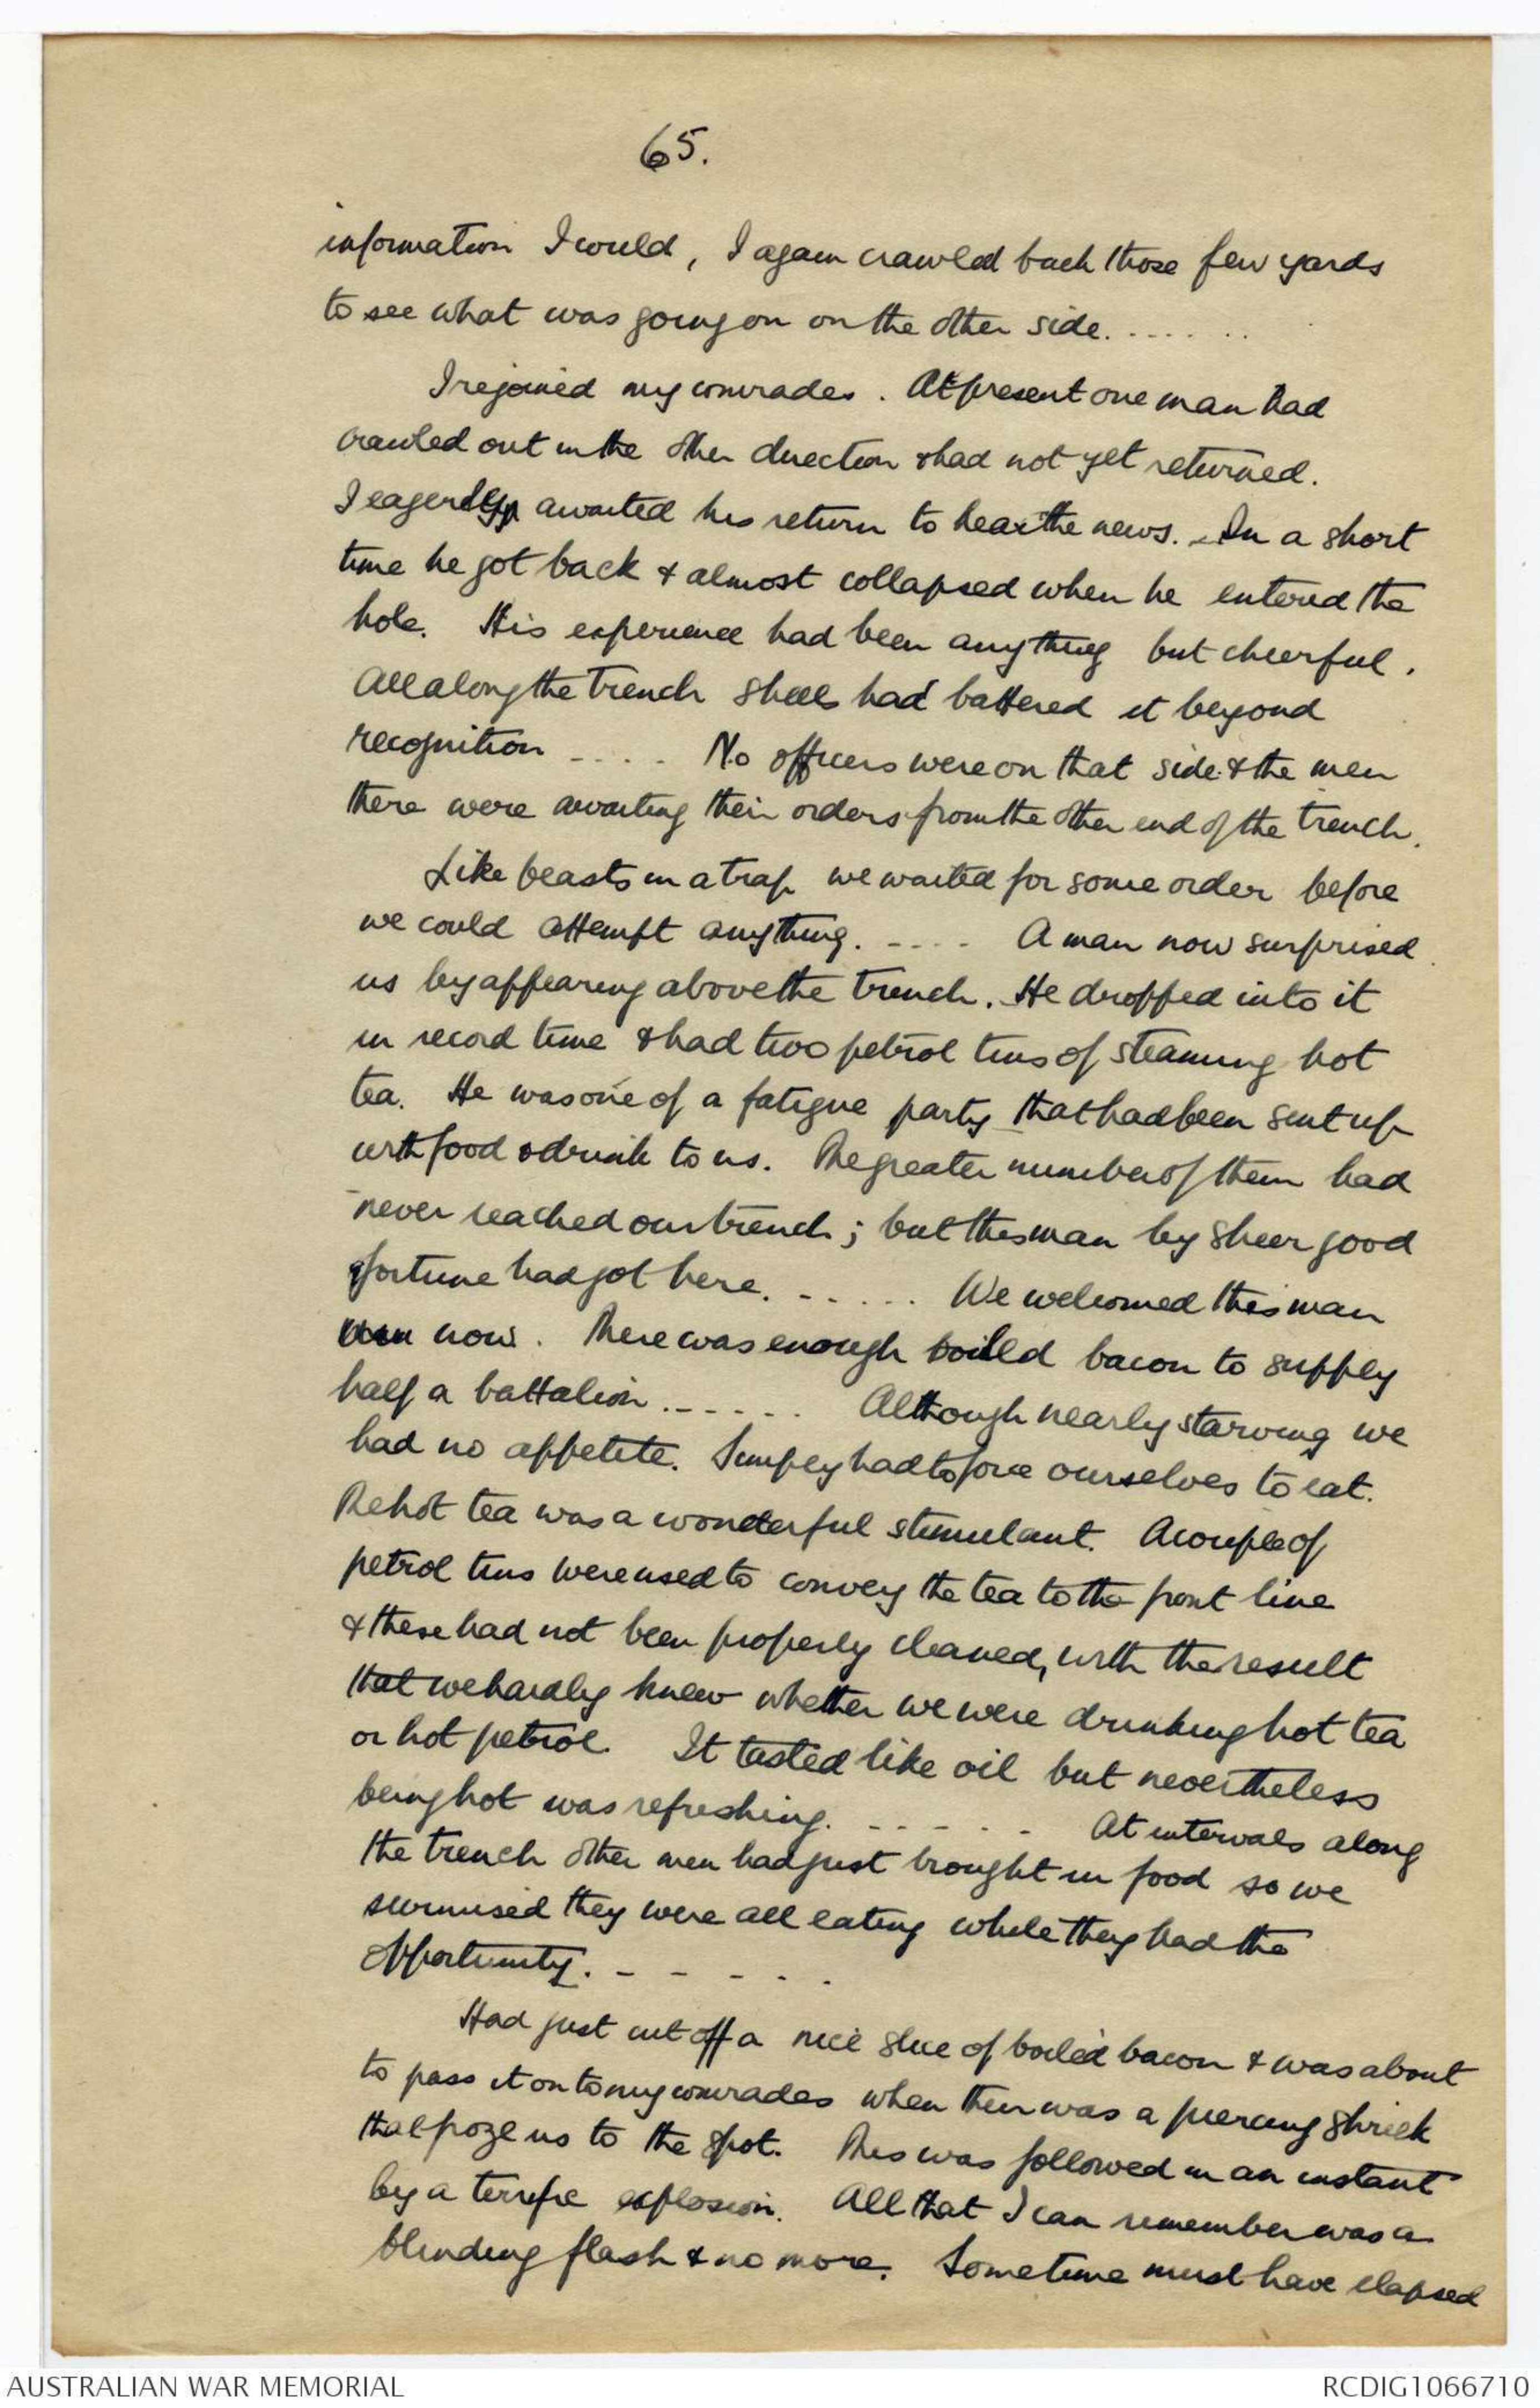 65.
information I could, I again crawled back those few yards
to see what was going on on the other side. . . . . . . .
I rejoined my comrades. At present one man had
crawled out in the other direction & had not yet returned.
I eagerly awaited his return to hear the news. In a short
time he got back & almost collapsed when he entered the
hole. His experience had been anything but cheerful.
All along the trench shells had battered it beyond
recognition . . . . . No officers were on that side & the men
there were awaiting their orders from the other end of the trench.
Like beasts in a trap we waited for some order before
we could attempt anything. . . . . . A man now surprised
us by appearing above the trench. He dropped into it
in record time & had two petrol tins of steaming hot
tea. He was one of a fatigue party that had been sent up
with food & drink to us. The greater number of them had
never reached our trench; but this man by sheer good
fortune had got here. . . . . . . We welcomed this man
now. There was enough boiled bacon to supply
half a battalion . . . . . . . Although nearly starving we
had no appetite. Simply had to force ourselves to eat.
The hot tea was a wonderful stimulant. A couple of
petrol tins were used to convey the tea to the front line
& these had not been properly cleaned, with the result
that we hardly knew whether we were drinking hot tea
or hot petrol. It tasted like oil but nevertheless
being hot was refreshing. . . . . . . At intervals along
the trench other men had just brought in food so we
surmised they were all eating while they had the
opportunity. . . . . . .
Had just cut off a nice slice of boiled bacon & was about
to pass it on to my comrades when there was a piercing shriek
that froze us to the spot. This was followed in an instant
by a terrific explosion. All that I can remember was a
blinding flash & no more. Sometime must have elapsed
AUSTRALIAN WAR MEMORIAL
RCDIG1066710